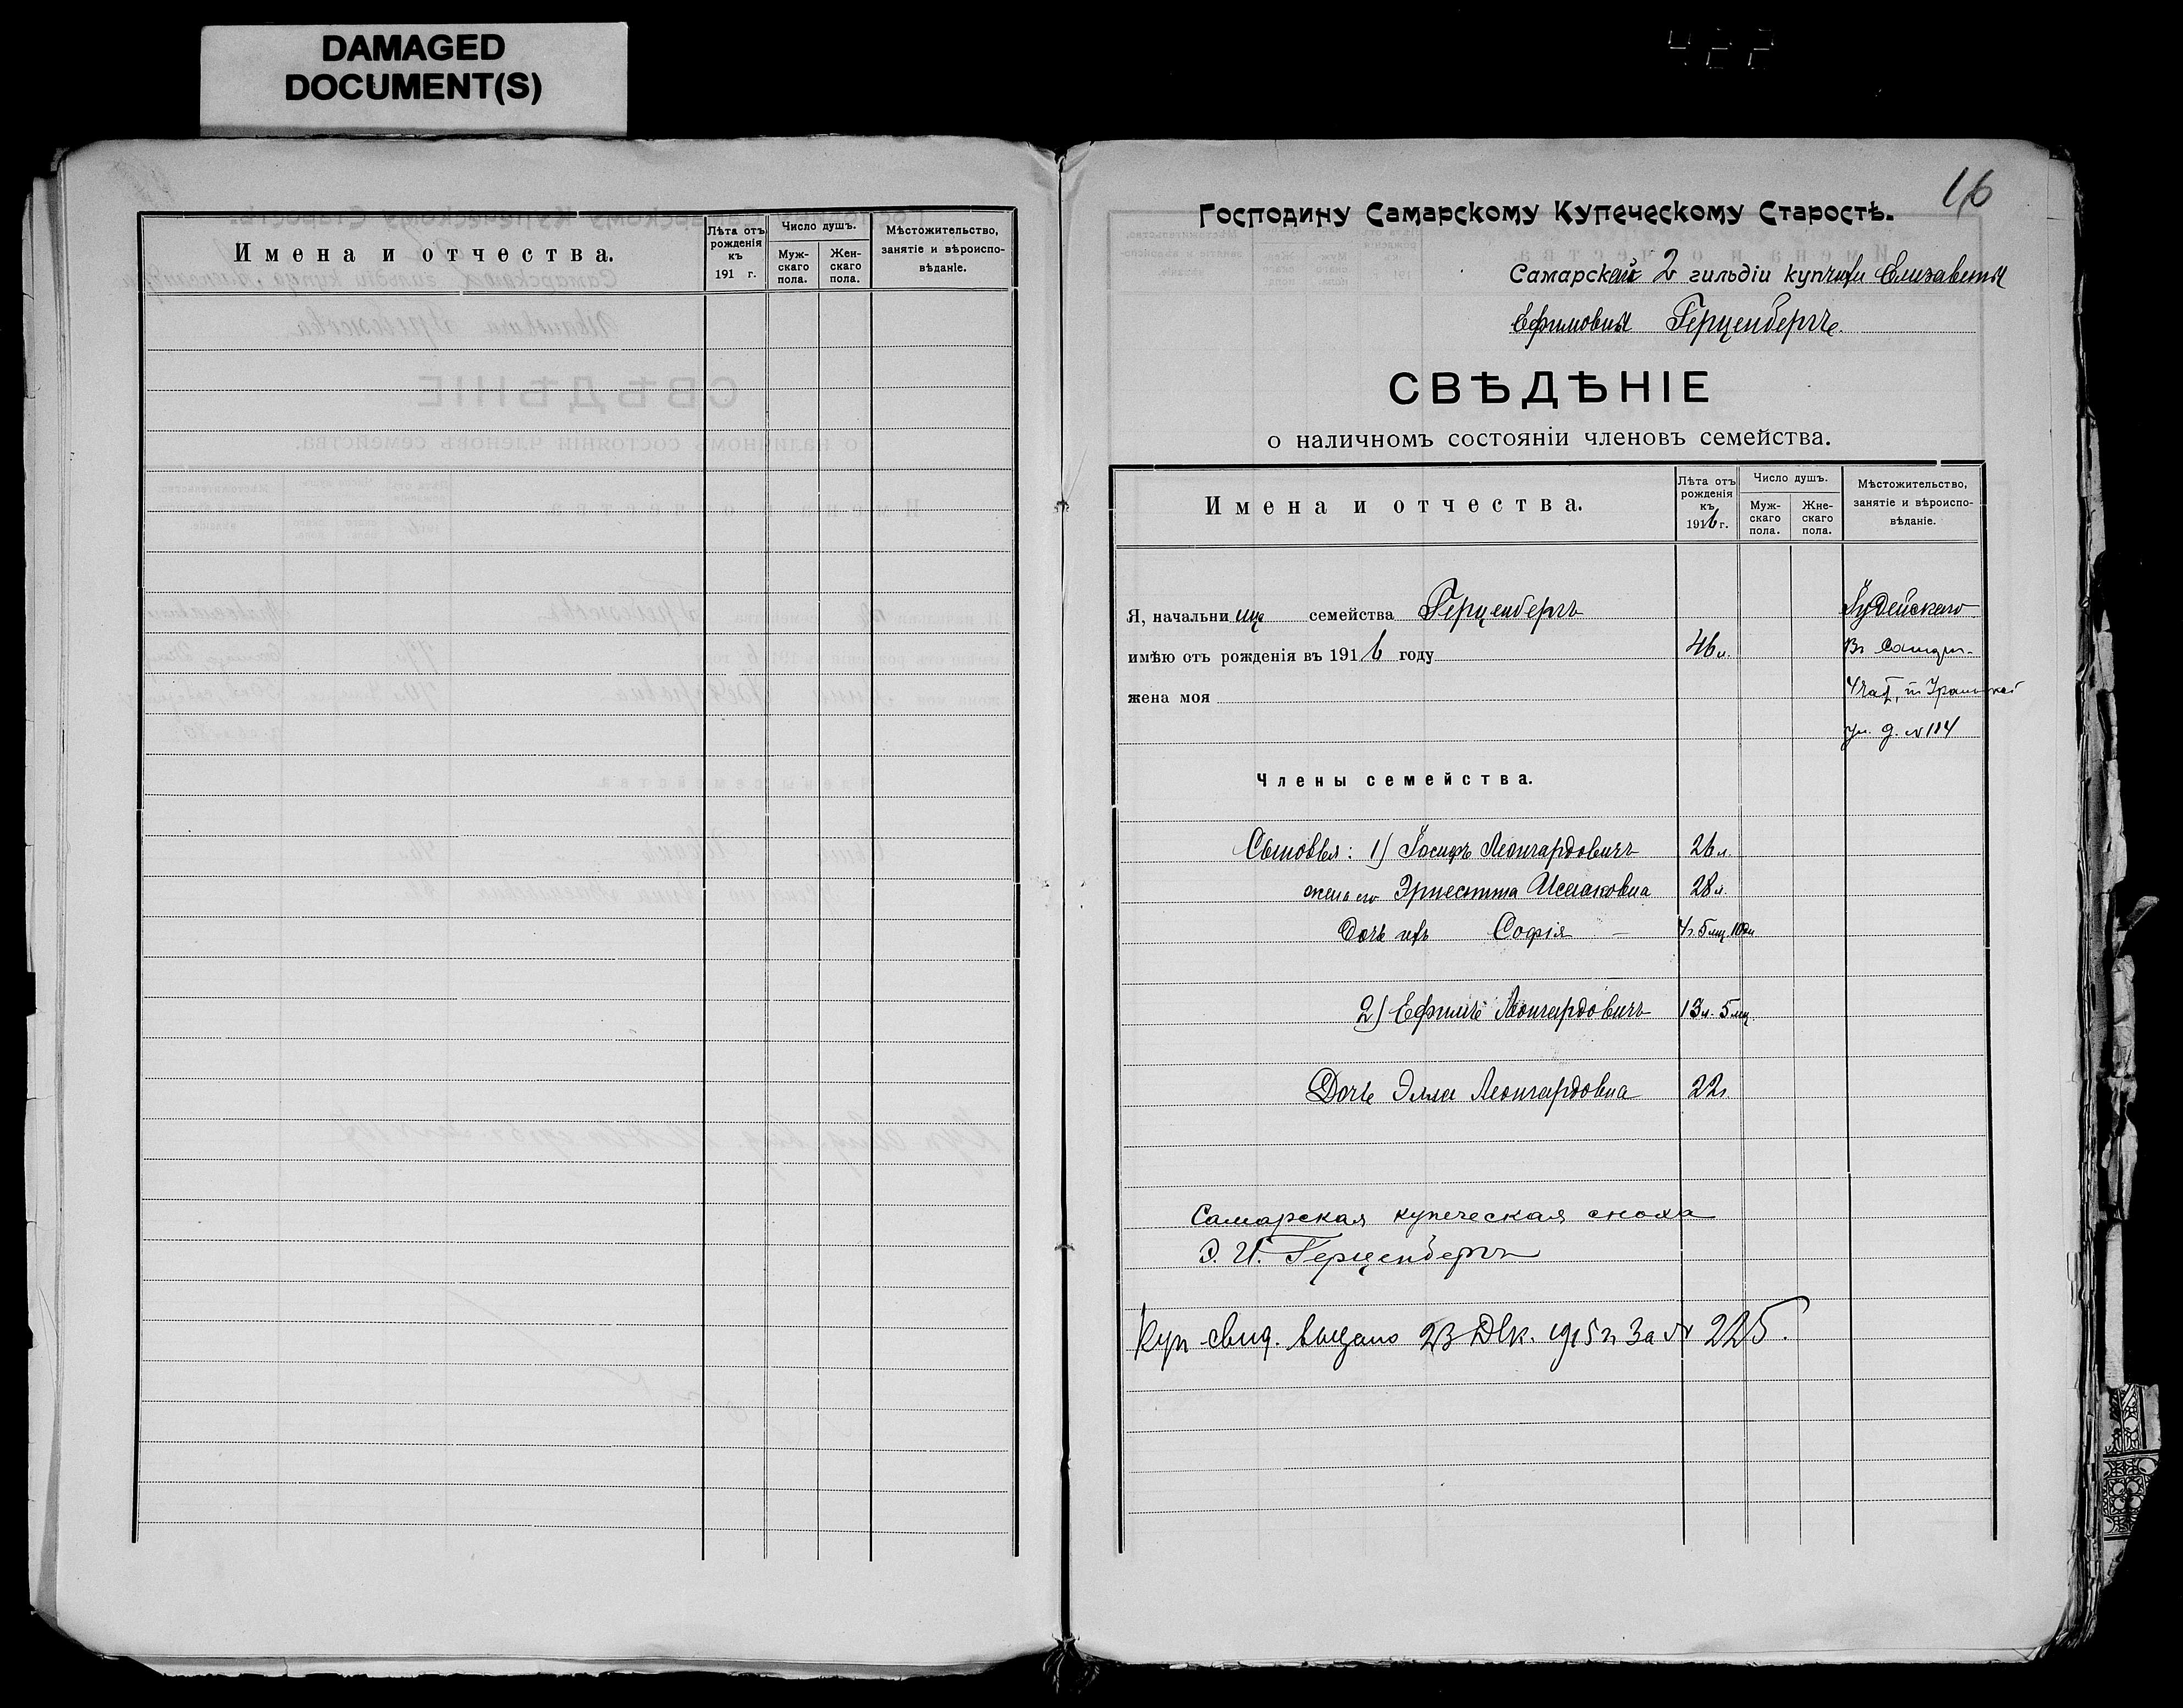 DAMAGED
DOCUMENT(S)
422
Имена и отчества.
Лѣта отъ
рожденія
къ
191 г.
Число душъ.
Муж-
скаго
пола.
Жен-
скаго
пола.
Мѣстожительство,
занятіе и вѣроиспо-
вѣданіе.
16
Господину Самарскому Купеческому Старостѣ.
Самарской 2 гильдіи купчихи Елизаветы
Ефимовны Герценбергъ.
СВѢДѢНІЕ
о наличномъ состояніи членовъ семейства.
Имена и отчества.
Лѣта отъ
рожденія
къ
1916 г.
Число душъ.
Муж-
скаго
пола.
Жне-
скаго
пола.
Мѣстожительство,
занятіе и вѣроиспо-
вѣданіе.
Я, начальница семейства Герценбергъ
Іудейскаго
имѣю отъ рожденія въ 1916 году 46 л.
Въ Самарѣ
жена моя
4 част,
ул. д. № 184
Члены семейства.
Сыновья: 1) Іосифъ Леонгардовичъ 26 л.
жена его Эрнестина Исааковна 28 л.
Дочь ихъ Софія — 4 г 5 мц 10 дн
2) Ефимъ Леонгардовичъ 13 л. 5 мц.
Дочь Элла Леонгардовна 22 г.
Самарская купеческая сноха
Э. И. Герценбергъ
Куп свид. выдано 23 Дек. 1915 г за № 225.